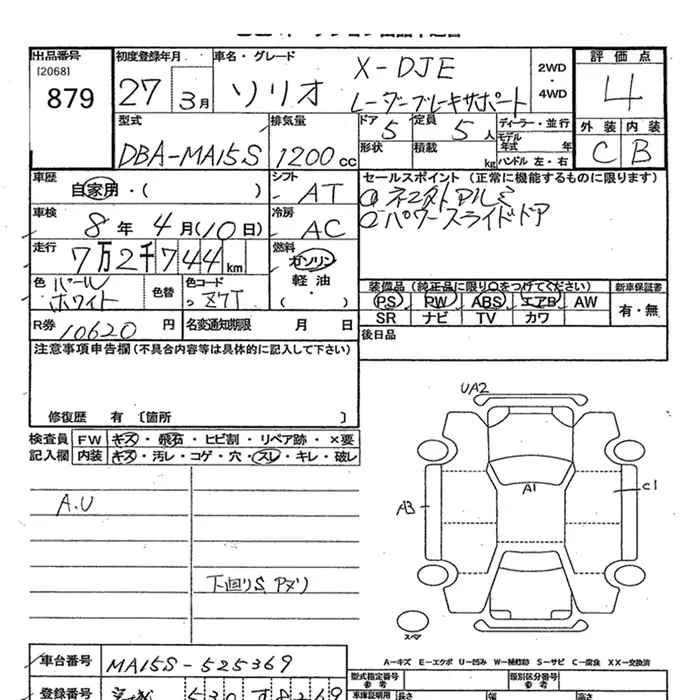 出品番号
[2068]
879
初度登録年月
27 3月
車名・グレード
ソリオ
X-DJE
レーダーブレーキサポート
2WD
・
4WD
評価点
4
外装 内装
C B
型式
DBA-MA15S
排気量
1200cc
ドア 5
定員 5人
形状
積載 kg
ディーラー・並行
モデル年式 年
ハンドル 左・右
車歴
自家用・( )
シフト
AT
車検
8年4月(10日)
冷房
AC
走行
7万2千744km
燃料
ガソリン
軽油
・( )
色 パールホワイト
色替
色コード
Z7T
R券 10620円
名変通知期限 月 日
セールスポイント(正常に機能するものに限ります)
パワースライドドア
装備品(純正品に限り○をつけてください)
PS PW ABS エアB AW
SR ナビ TV カワ
新車保証書
有・無
後日品
注意事項申告欄(不具合内容等は具体的に記入して下さい)
修復歴 有〔箇所 〕
検査員記入欄
FW キズ・飛石・ヒビ割・リペア跡・×要
内装 キズ・汚レ・コゲ・穴・スレ・キレ・破レ
A.U
下回りS,アリ
UA2
A1
A3
C1
スペア
A-キズ E-エクボ U-凹み W-補修跡 S-サビ C-腐食 XX-交換済
車台番号 MA15S-525369
登録番号
530
8269
型式指定番号
参考
類別区分番号
参考
車庫証明用 長さ 幅 高さ